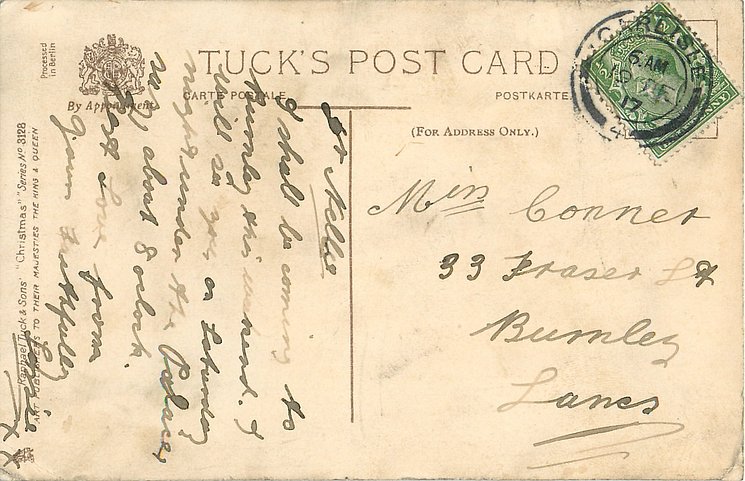 TUCK'S POST CARD
CARTE POSTALE
POSTKARTE.
By Appointment
Processed
in Berlin
(FOR ADDRESS ONLY.)
CARLISLE
6. AM
17
Miss Conner
33 Fraser St
Burnley
Lancs
Dr Nellie
I shall be coming to
Burnley this weekend. I
will see you on Saturday
night under the Palace,
say about 8 oclock.
Best Love from
yours Faithfully
Raphael Tuck & Sons' "Christmas" Series No 8128
ART PUBLISHERS TO THEIR MAJESTIES THE KING & QUEEN